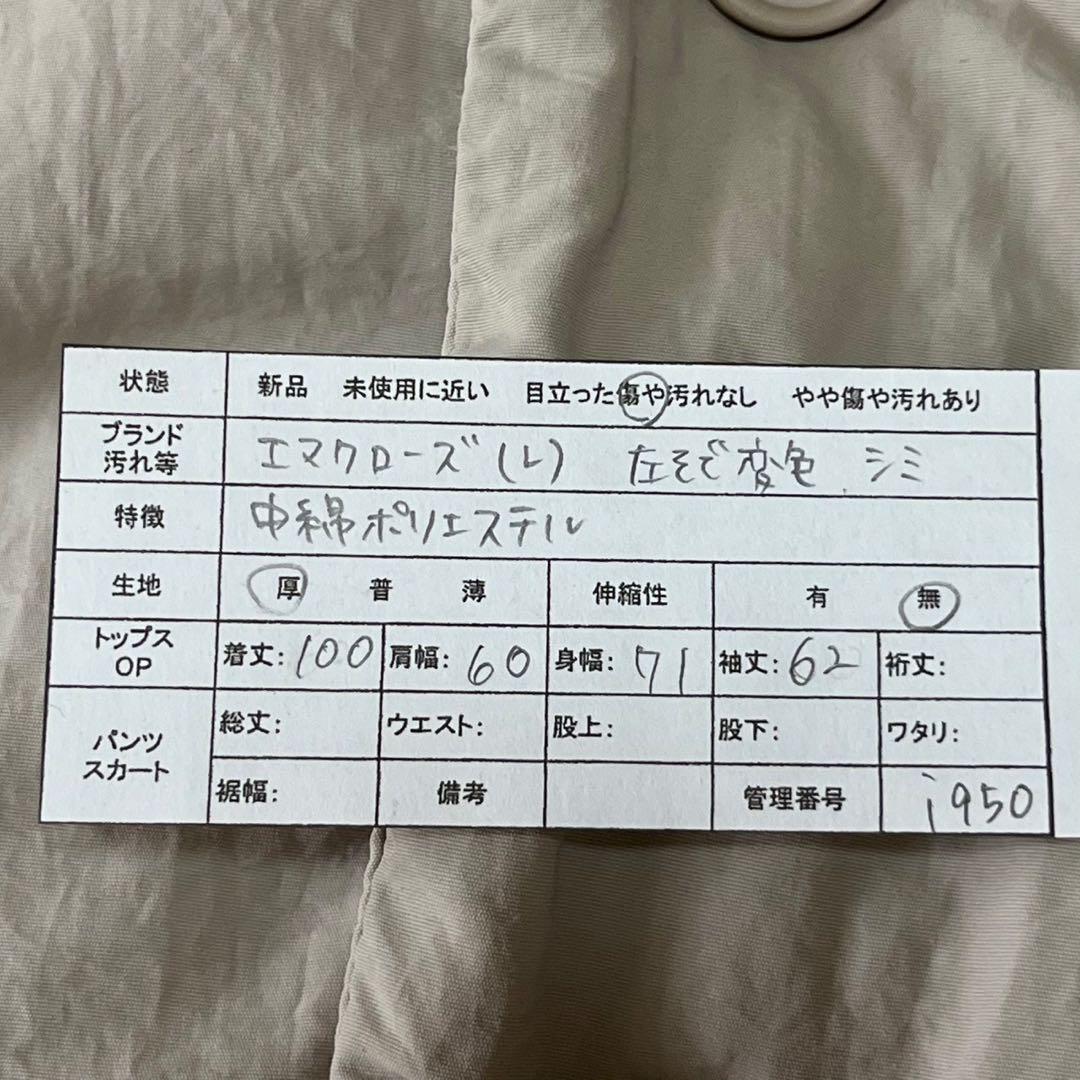 状態 新品 未使用に近い 目立った傷や汚れなし やや傷や汚れあり
ブランド
汚れ等 エマクローズ(L) 左そで変色 シミ
特徴 中綿ポリエステル
生地 厚 普 薄 伸縮性 有 無
トップス
OP 着丈:100 肩幅:60 身幅:71 袖丈:62 裄丈:
パンツ
スカート 総丈: ウエスト: 股上: 股下: ワタリ:
裾幅: 備考 管理番号 i950